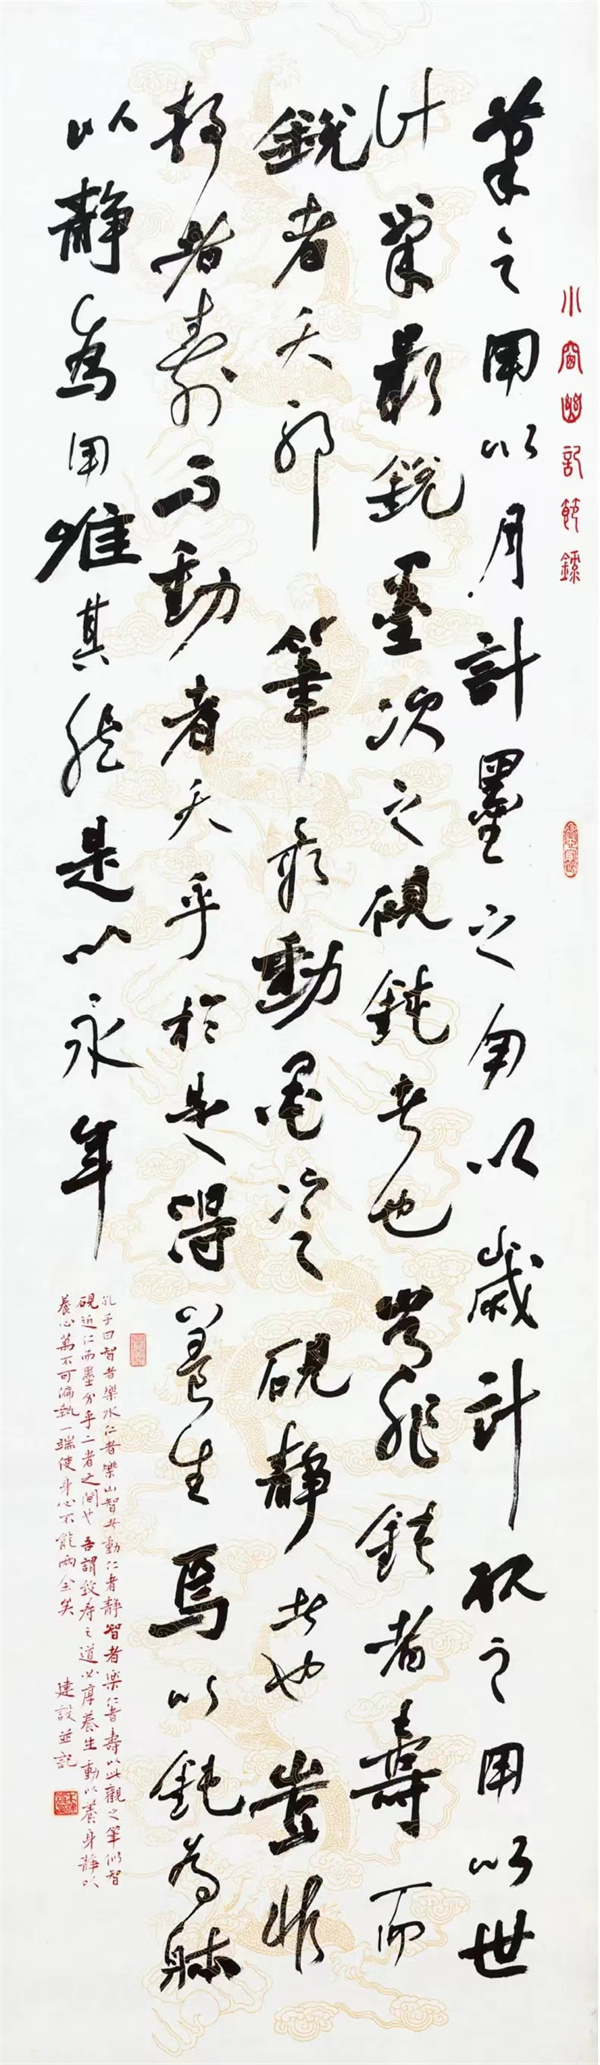 小窗幽記節錄
筆之用以月計墨之用以歲計硯之用以世
計筆最銳墨次之硯鈍者也豈非鈍者壽而
銳者夭耶筆最動墨次之硯靜者也豈非
靜者壽而動者夭乎於是得養生焉以鈍為躰
以静為用惟其然是以永年
孔子曰智者樂水仁者樂山智者動仁者静智者樂仁者壽以此觀之筆似智
硯近仁而墨分乎二者之間也吾謂致壽之道必厚養生動以養身静以
養心萬不可偏執一端使身心不能兩全矣 建設並記